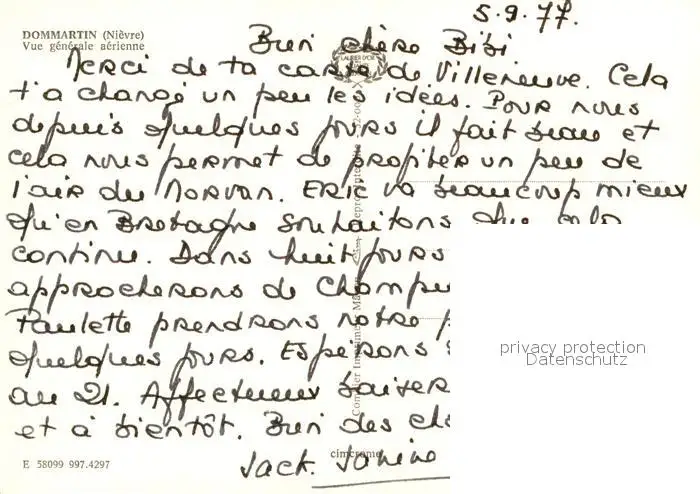 5.9.77.
DOMMARTIN (Nièvre)
Vue générale aérienne
Bien chère Bibi
Merci de ta carte de Villeneuve. Cela
t'a changé un peu les idées. Pour nous
depuis quelques jours il fait beau et
cela nous permet de profiter un peu de
l'air du Morvan. Eric va beaucoup mieux
qu'en Bretagne souhaitons que cela
continue. Dans huit jours
approcherons de
Paulette prendrons notre
quelques jours. Espérons
au 21. Affectueux baisers
et à bientôt. Bien des
Jack. Janine
E 58099 997.4297
cimcrome
privacy protection
Datenschutz